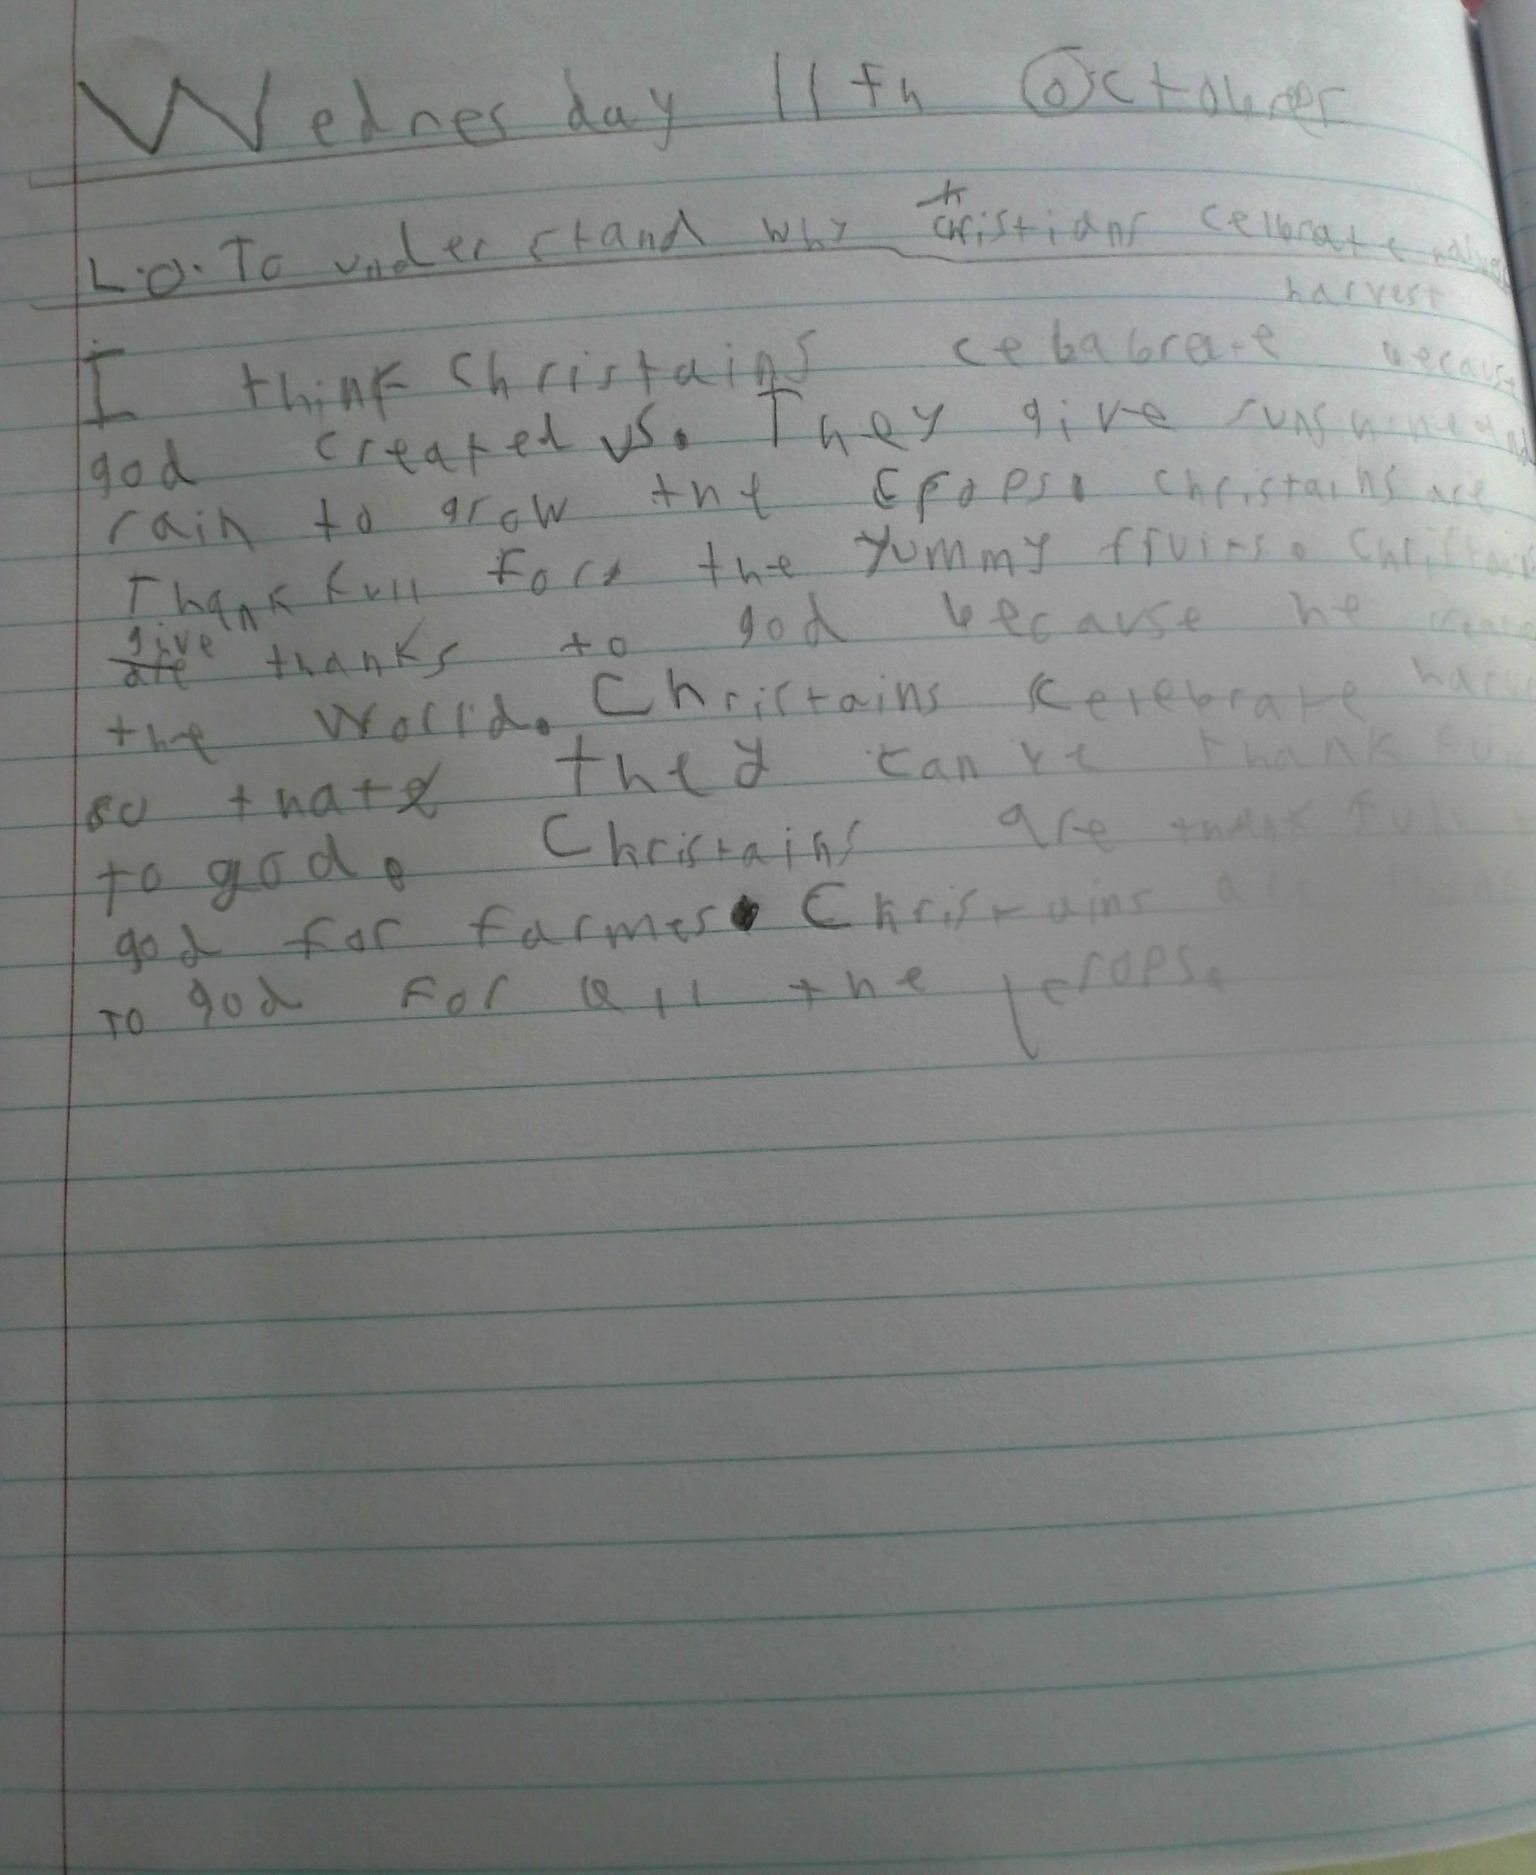 Wednesday 11th October
L.O. To understand why christians celbrate
harvest
I think Christains cebabrate because
god created us. They give sunshine and
rain to grow the crops. Christains are
Thankfull for the yummy ffuits. Christains
give thanks to god because he
the worlld. Christains celebrate
so that they can be thank
to god. Christains are thankful
god for farmes. Christains
To god For all the crops.